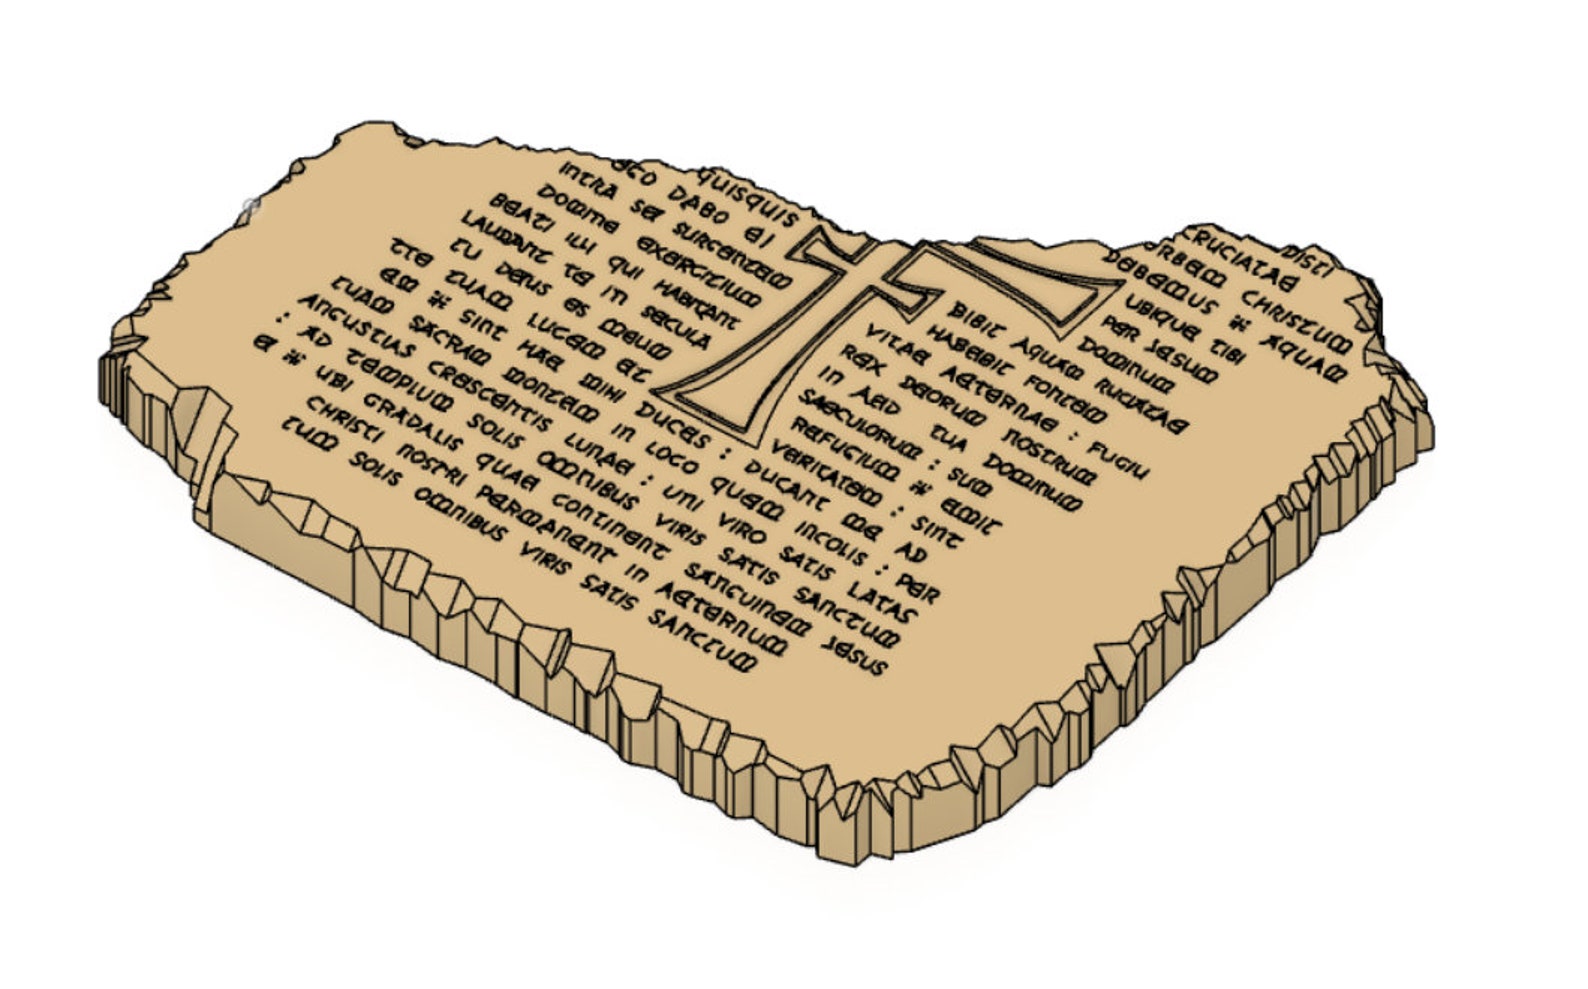 DISTI
RUCIATAE
RBEM CHRISTUM
DEBEMUS ※ AQUAM
UBIQUE TIBI
PER JESUM
DOMINUM
QUISQUIS BIBIT AQUAM RUCIATAE
DABO EI HABEBIT FONTEM
INTRA SEI SURGENTEM VITAE AETERNAE : FUGIU
DOMINE EXERCITIUM REX DEORUM NOSTRUM
BEATI ILLI QUI HABITANT IN AED TUA DOMINUM
LAUDANT TE IN SECULA SAECULORUM : SUM
TU DEUS ES MEUM REFUGIUM ※ EMIT
TTE TUAM LUCEM ET VERITATEM : SINT
EM ※ SINT HAE MIHI DUCES : DUCANT ME AD
TUAM SACRAM MONTEM IN LOCO QUEM INCOLIS : PER
ANGUSTIAS CRESCENTIS LUNAE : UNI VIRO SATIS LATAS
: AD TEMPLUM SOLIS OMNIBUS VIRIS SATIS SANCTUM
E ※ UBI GRADALIS QUAE CONTINENT SANGUINEM JESUS
CHRISTI NOSTRI PERMANENT IN AETERNUM
TUM SOLIS OMNIBUS VIRIS SATIS SANCTUM